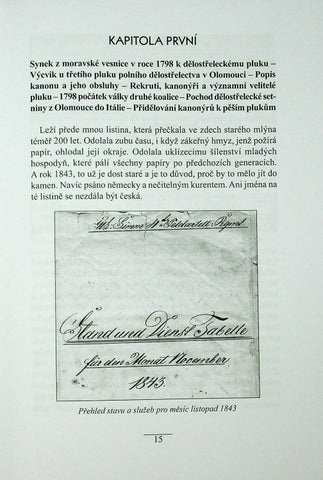 KAPITOLA PRVNÍ
Synek z moravské vesnice v roce 1798 k dělostřeleckému pluku –
Výcvik u třetího pluku polního dělostřelectva v Olomouci – Popis
kanonu a jeho obsluhy – Rekruti, kanonýři a významní velitelé
pluku – 1798 počátek války druhé koalice – Pochod dělostřelecké set-
niny z Olomouce do Itálie – Přidělování kanonýrů k pěším plukům
Leží přede mnou listina, která přečkala ve zdech starého mlýna
téměř 200 let. Odolala zubu času, i když zákeřný hmyz, jenž požírá
papír, ohlodal její okraje. Odolala uklízecímu šílenství mladých
hospodyň, které páli všechny papíry po předchozích generacích.
A rok 1843, to už je dost staré a je to důvod, proč by to mělo jít do
kamen. Navíc psáno německy a nečitelným kurentem. Ani jména na
té listině se nezdála být česká.
Stand und Dienst Tabelle
für den Monat November
1843.
Přehled stavu a služeb pro měsíc listopad 1843
15